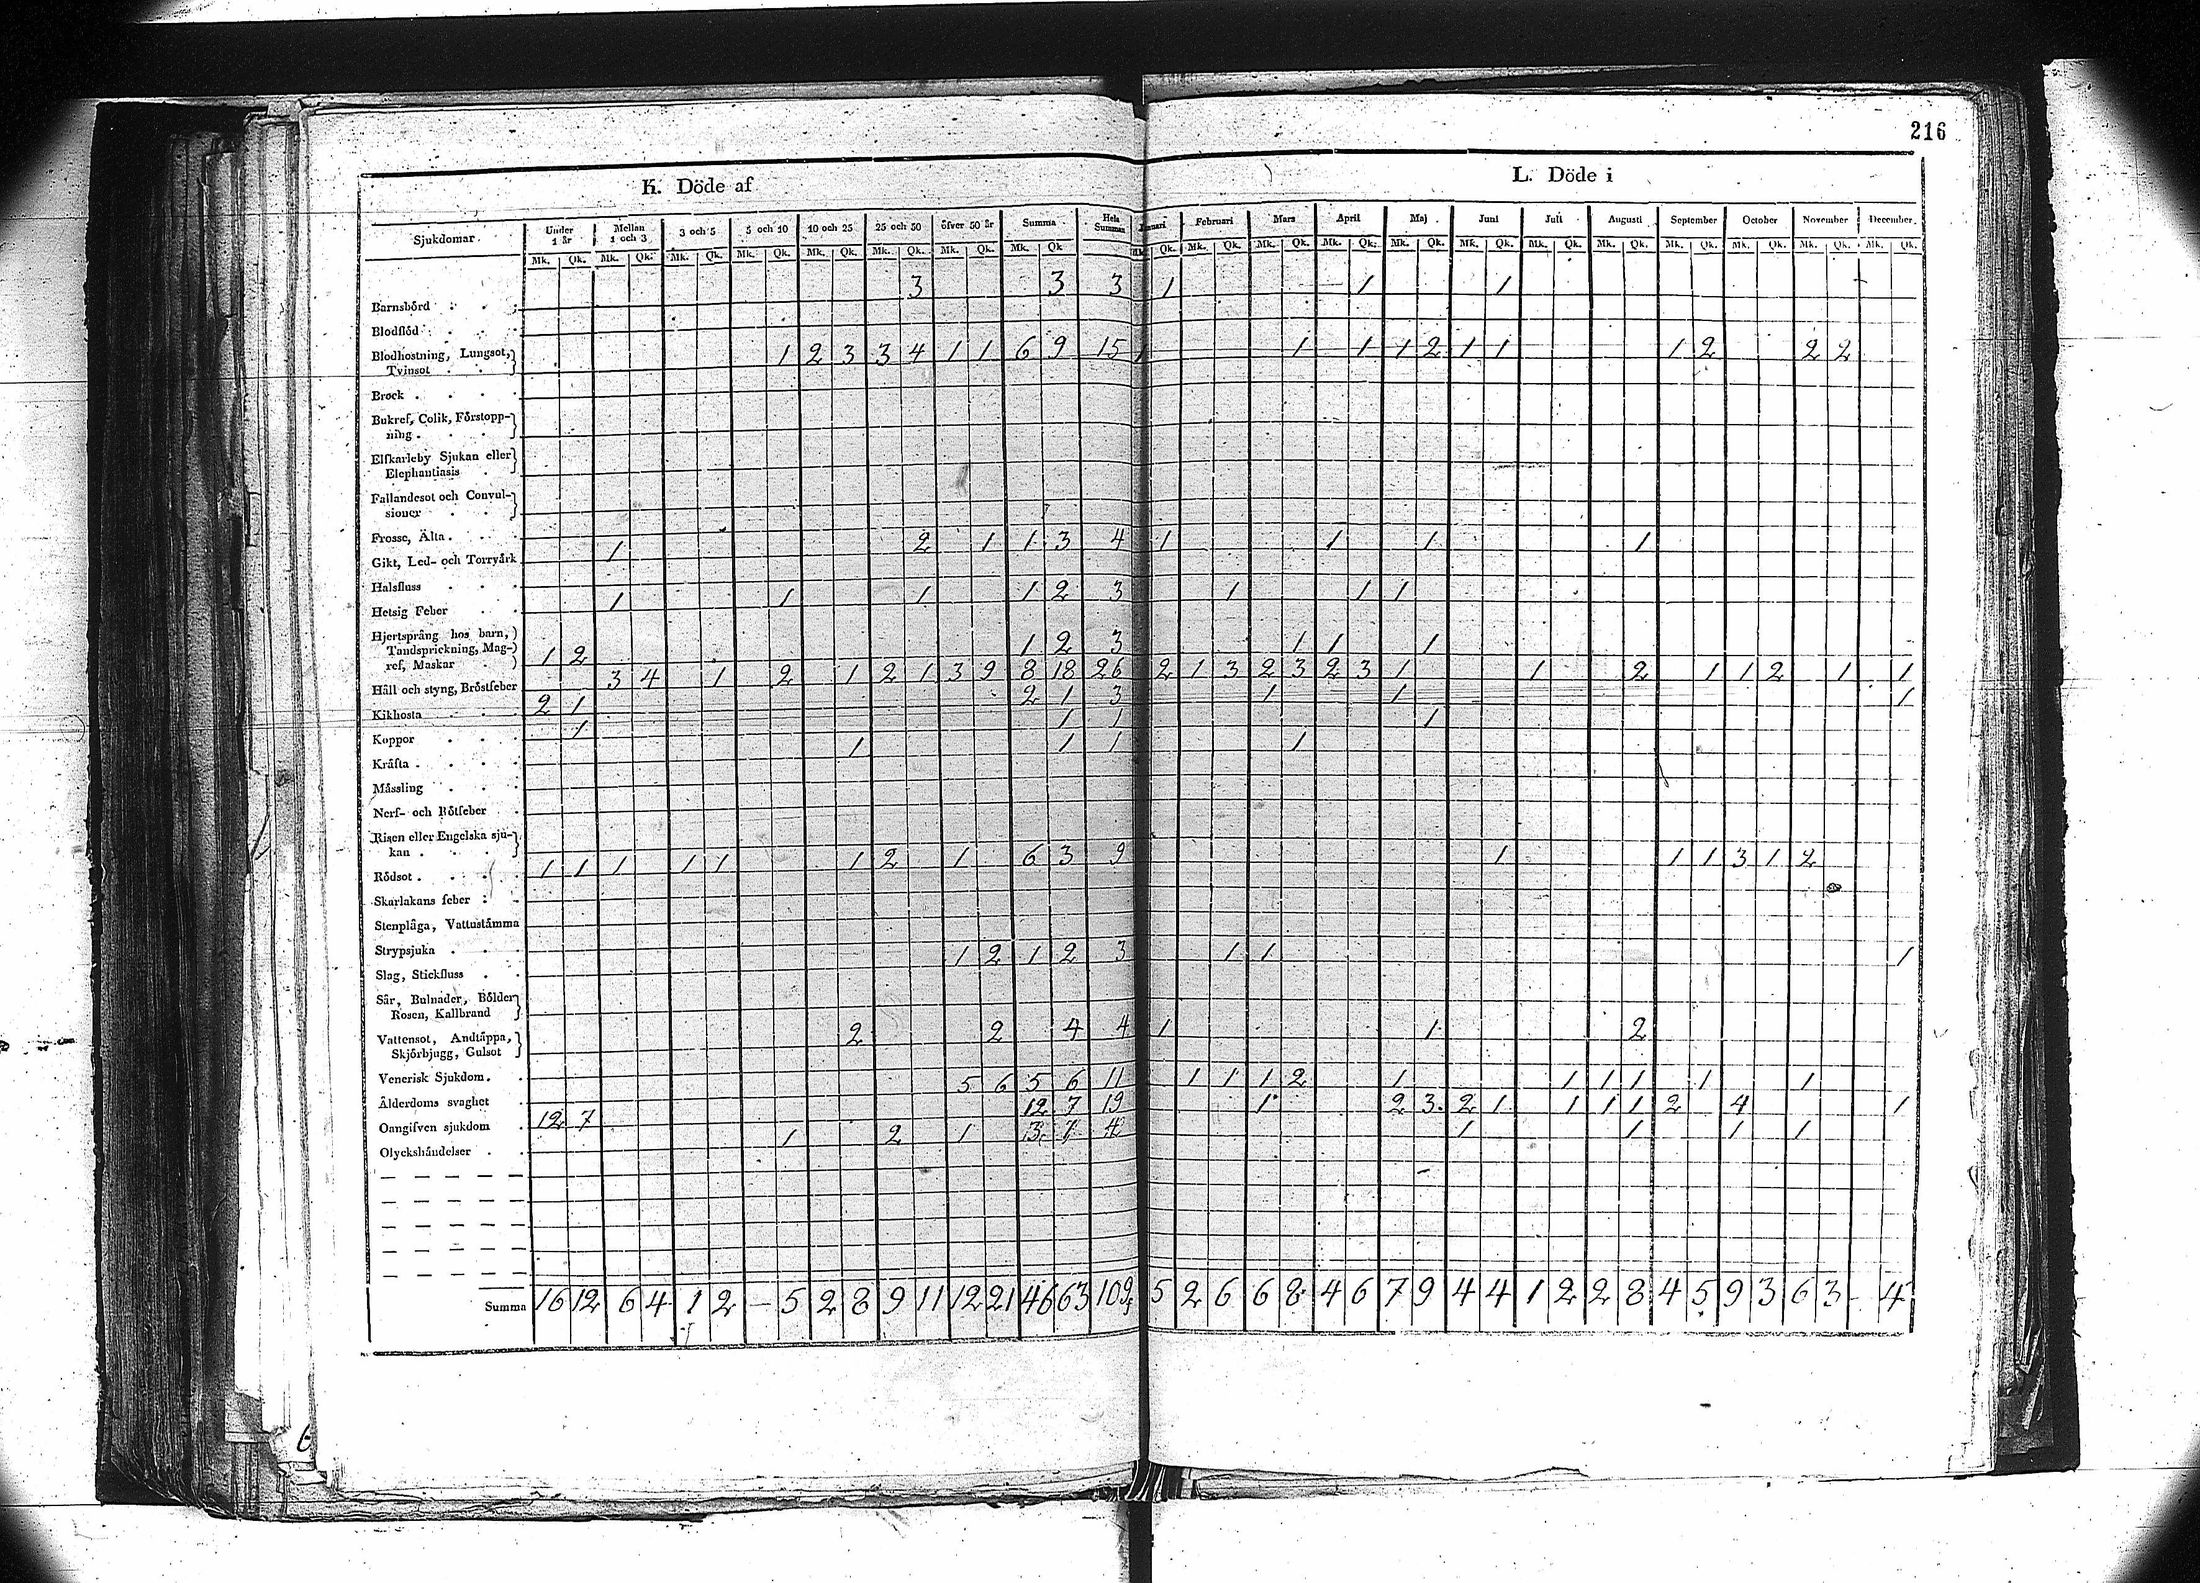 216
K. Döde af
L. Döde i
Sjukdomar. Under 1 år Mellan 1 och 3 3 och 5 5 och 10 10 och 25 25 och 50 öfver 50 år Summa Hela Summan Februari Mars April Maj Juni Juli Augusti September October November December
Mk. Qk. Mk. Qk. Mk. Qk. Mk. Qk. Mk. Qk. Mk. Qk. Mk. Qk. Mk. Qk. Qk. Mk. Qk. Mk. Qk. Mk. Qk. Mk. Qk. Mk. Qk. Mk. Qk. Mk. Qk. Mk. Qk. Mk. Qk. Mk. Qk. Mk. Qk.
Barnsbörd 3 3 3 1 1 1
Blodflöd
Blodhostning, Lungsot, Tvinsot 1 2 3 3 4 1 1 6 9 15 1 1 1 1 2 1 1 1 2 2 2
Brock
Bukref, Colik, Förstoppning
Elfkarleby Sjukan eller Elephantiasis
Fallandesot och Convulsioner
Frossc, Älta
Gikt, Led- och Torrvärk 1 2 1 1 3 4 1 1 1 1
Halsfluss
Hetsig Feber 1 1 1 1 2 3 1 1 1
Hjertsprång hos barn, Tandsprickning, Magref, Maskar 1 2 1 2 3 1 1 1
Håll och styng, Bröstfeber 3 4 1 2 1 2 1 3 9 8 18 26 2 1 3 2 3 2 3 1 1 2 1 1 2 1 1
Kikhosta 2 1 2 1 3 1 1 1
Koppor 1 1 1 1
Kräfta 1 1 1 1
Mässling
Nerf- och Rötfeber
Risen eller Engelska sjukan
Rödsot 1 1 1 1 1 1 2 1 6 3 9 1 1 1 3 1 2
Skarlakans feber
Stenplåga, Vattustämma
Strypsjuka
Slag, Stickfluss 1 2 1 2 3 1 1 1
Sår, Bulnader, Bölder Rosen, Kallbrand
Vattensot, Andtäppa, Skjörbjugg, Gulsot 2 2 4 4 1 1 2
Venerisk Sjukdom.
Ålderdoms svaghet 5 6 5 6 11 1 1 1 2 1 1 1 1 1 1
Oangifven sjukdom 12 7 12 7 19 1 2 3 2 1 1 1 1 2 4 1
Olyckshändelser 1 2 1 3 1 4 1 1 1 1
Summa 16 12 6 4 1 2 – 5 2 8 9 11 12 21 46 63 109 5 2 6 6 8 4 6 7 9 4 4 1 2 2 8 4 5 9 3 6 3 – 4